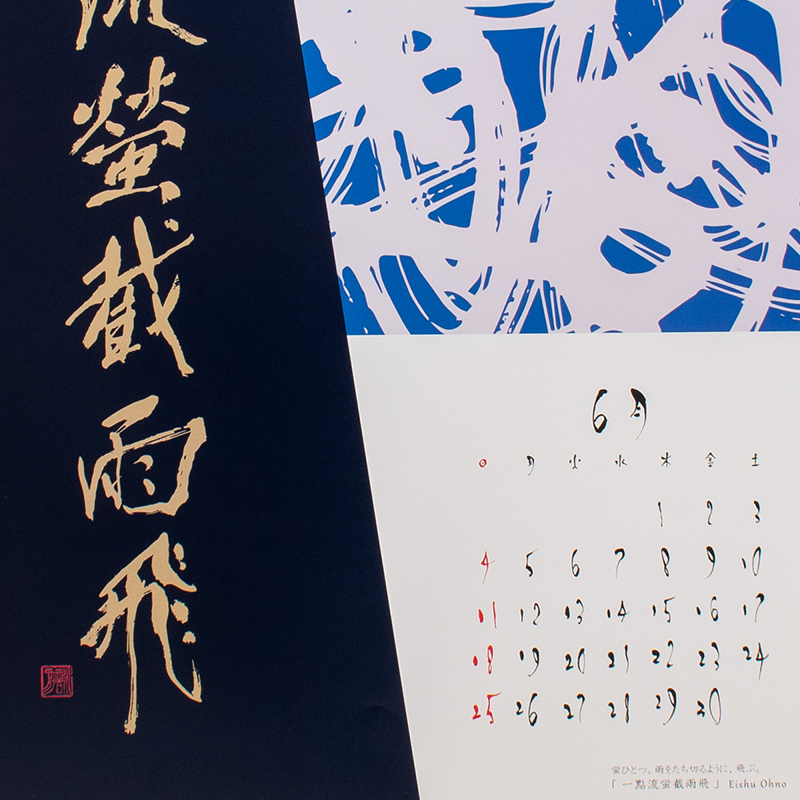 流螢截雨飛
6月
日 月 火 水 木 金 土
1 2 3
4 5 6 7 8 9 10
11 12 13 14 15 16 17
18 19 20 21 22 23 24
25 26 27 28 29 30
蛍ひとつ。雨をたち切るように、飛ぶ。
「 一點流蛍截雨飛 」 Eishu Ohno